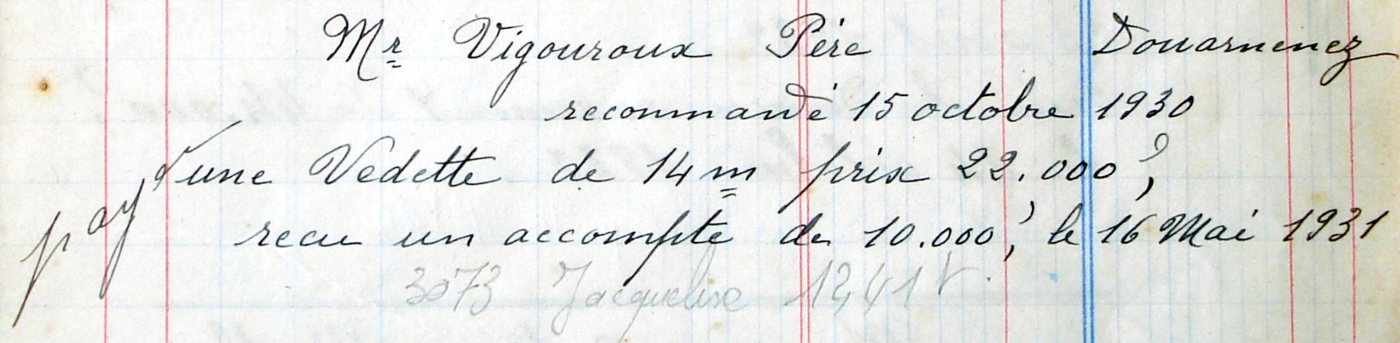 Mr Vigouroux Père Douarnenez
recommandé 15 octobre 1930
une Vedette de 14m prix 22.000,
recu un accompte de 10.000, le 16 Mai 1931
payé
3073 Jacqueline